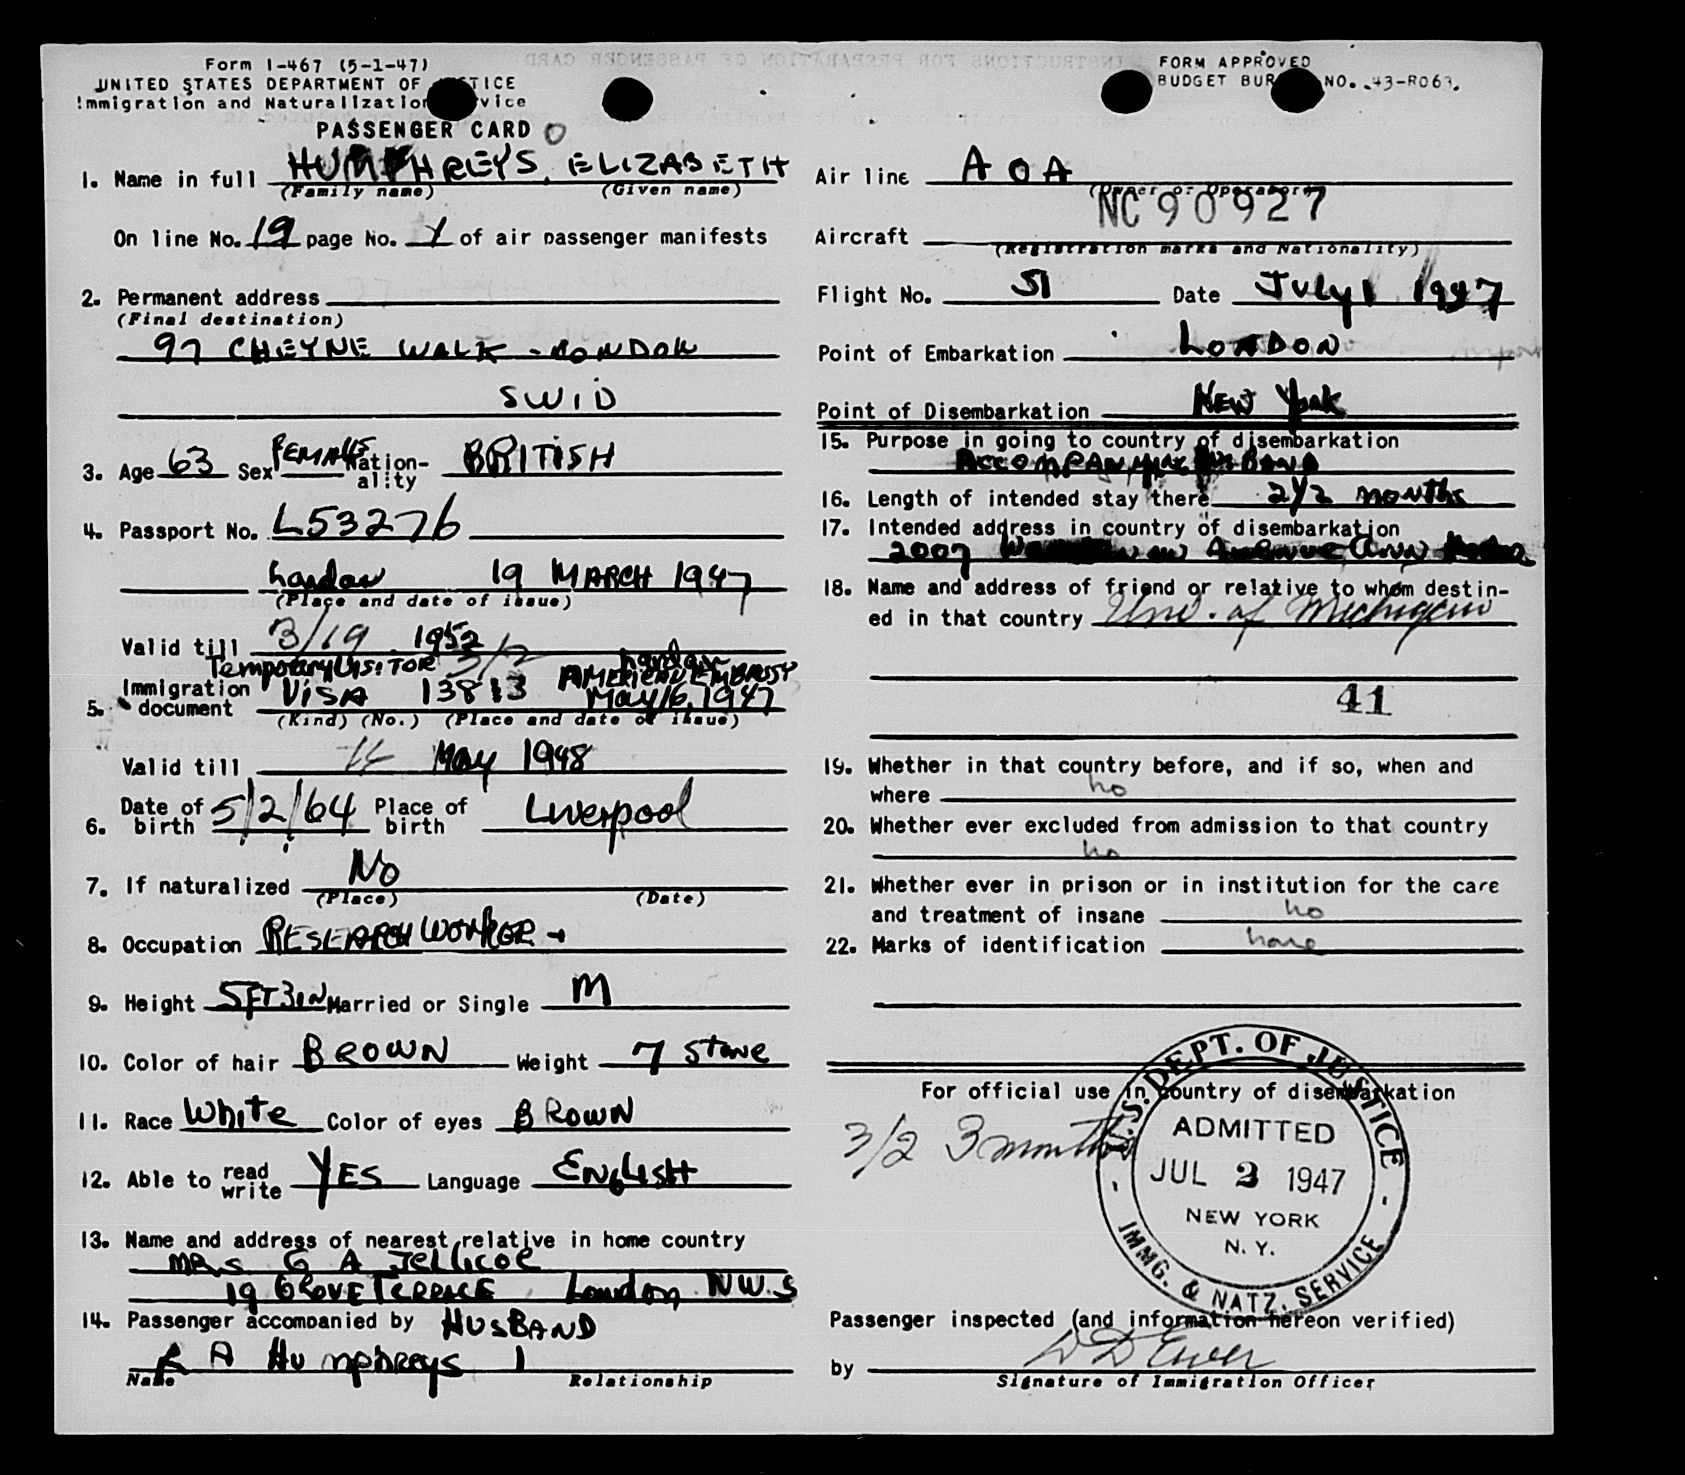 Form I-467 (5-1-47)
UNITED STATES DEPARTMENT OF JUSTICE
Immigration and Naturalization Service
PASSENGER CARD
FORM APPROVED
BUDGET BUREAU NO. 43-R063.
1. Name in full HUMPHREYS, ELIZABETH
(Family name) (Given name)
On line No. 19 page No. 1 of air passenger manifests
2. Permanent address
(Final destination)
97 CHEYNE WALK - LONDON
SW10
3. Age 63 Sex FEMALE Nationality BRITISH
4. Passport No. L53276
London 19 MARCH 1947
(Place and date of issue)
Valid till 3/19 1952
Temporary Visitor 3/2 London
5. Immigration document VISA 13813 AMERICAN EMBASSY May 16, 1947
(Kind) (No.) (Place and date of issue)
Valid till May 1948
6. Date of birth 5/2/64 Place of birth Liverpool
7. If naturalized No
(Place) (Date)
8. Occupation RESEARCH WORKER
9. Height 5FT 3IN Married or Single M
10. Color of hair BROWN Weight 7 Stone
11. Race White Color of eyes BROWN
12. Able to read write YES Language ENGLISH
13. Name and address of nearest relative in home country
MRS G A Jellicoe
19 GROVE TERRACE London NW5
14. Passenger accompanied by HUSBAND
A Humphreys
Name Relationship
Air line A O A
(Owner or Operator)
NC 90927
Aircraft
(Registration marks and Nationality)
Flight No. 51 Date July 1 1947
Point of Embarkation LONDON
Point of Disembarkation NEW YORK
15. Purpose in going to country of disembarkation
ACCOMPANYING HUSBAND
16. Length of intended stay there 2 1/2 MONTHS
17. Intended address in country of disembarkation
2007 Avenue Ann
18. Name and address of friend or relative to whom destin-
ed in that country Univ. of Michigan
41
19. Whether in that country before, and if so, when and
where no
20. Whether ever excluded from admission to that country
no
21. Whether ever in prison or in institution for the care
and treatment of insane no
22. Marks of identification none
For official use in country of disembarkation
3/2 3 months
U.S. DEPT. OF JUSTICE
ADMITTED
JUL 2 1947
NEW YORK
N. Y.
IMMG. & NATZ. SERVICE
Passenger inspected (and information hereon verified)
by
Signature of Immigration Officer